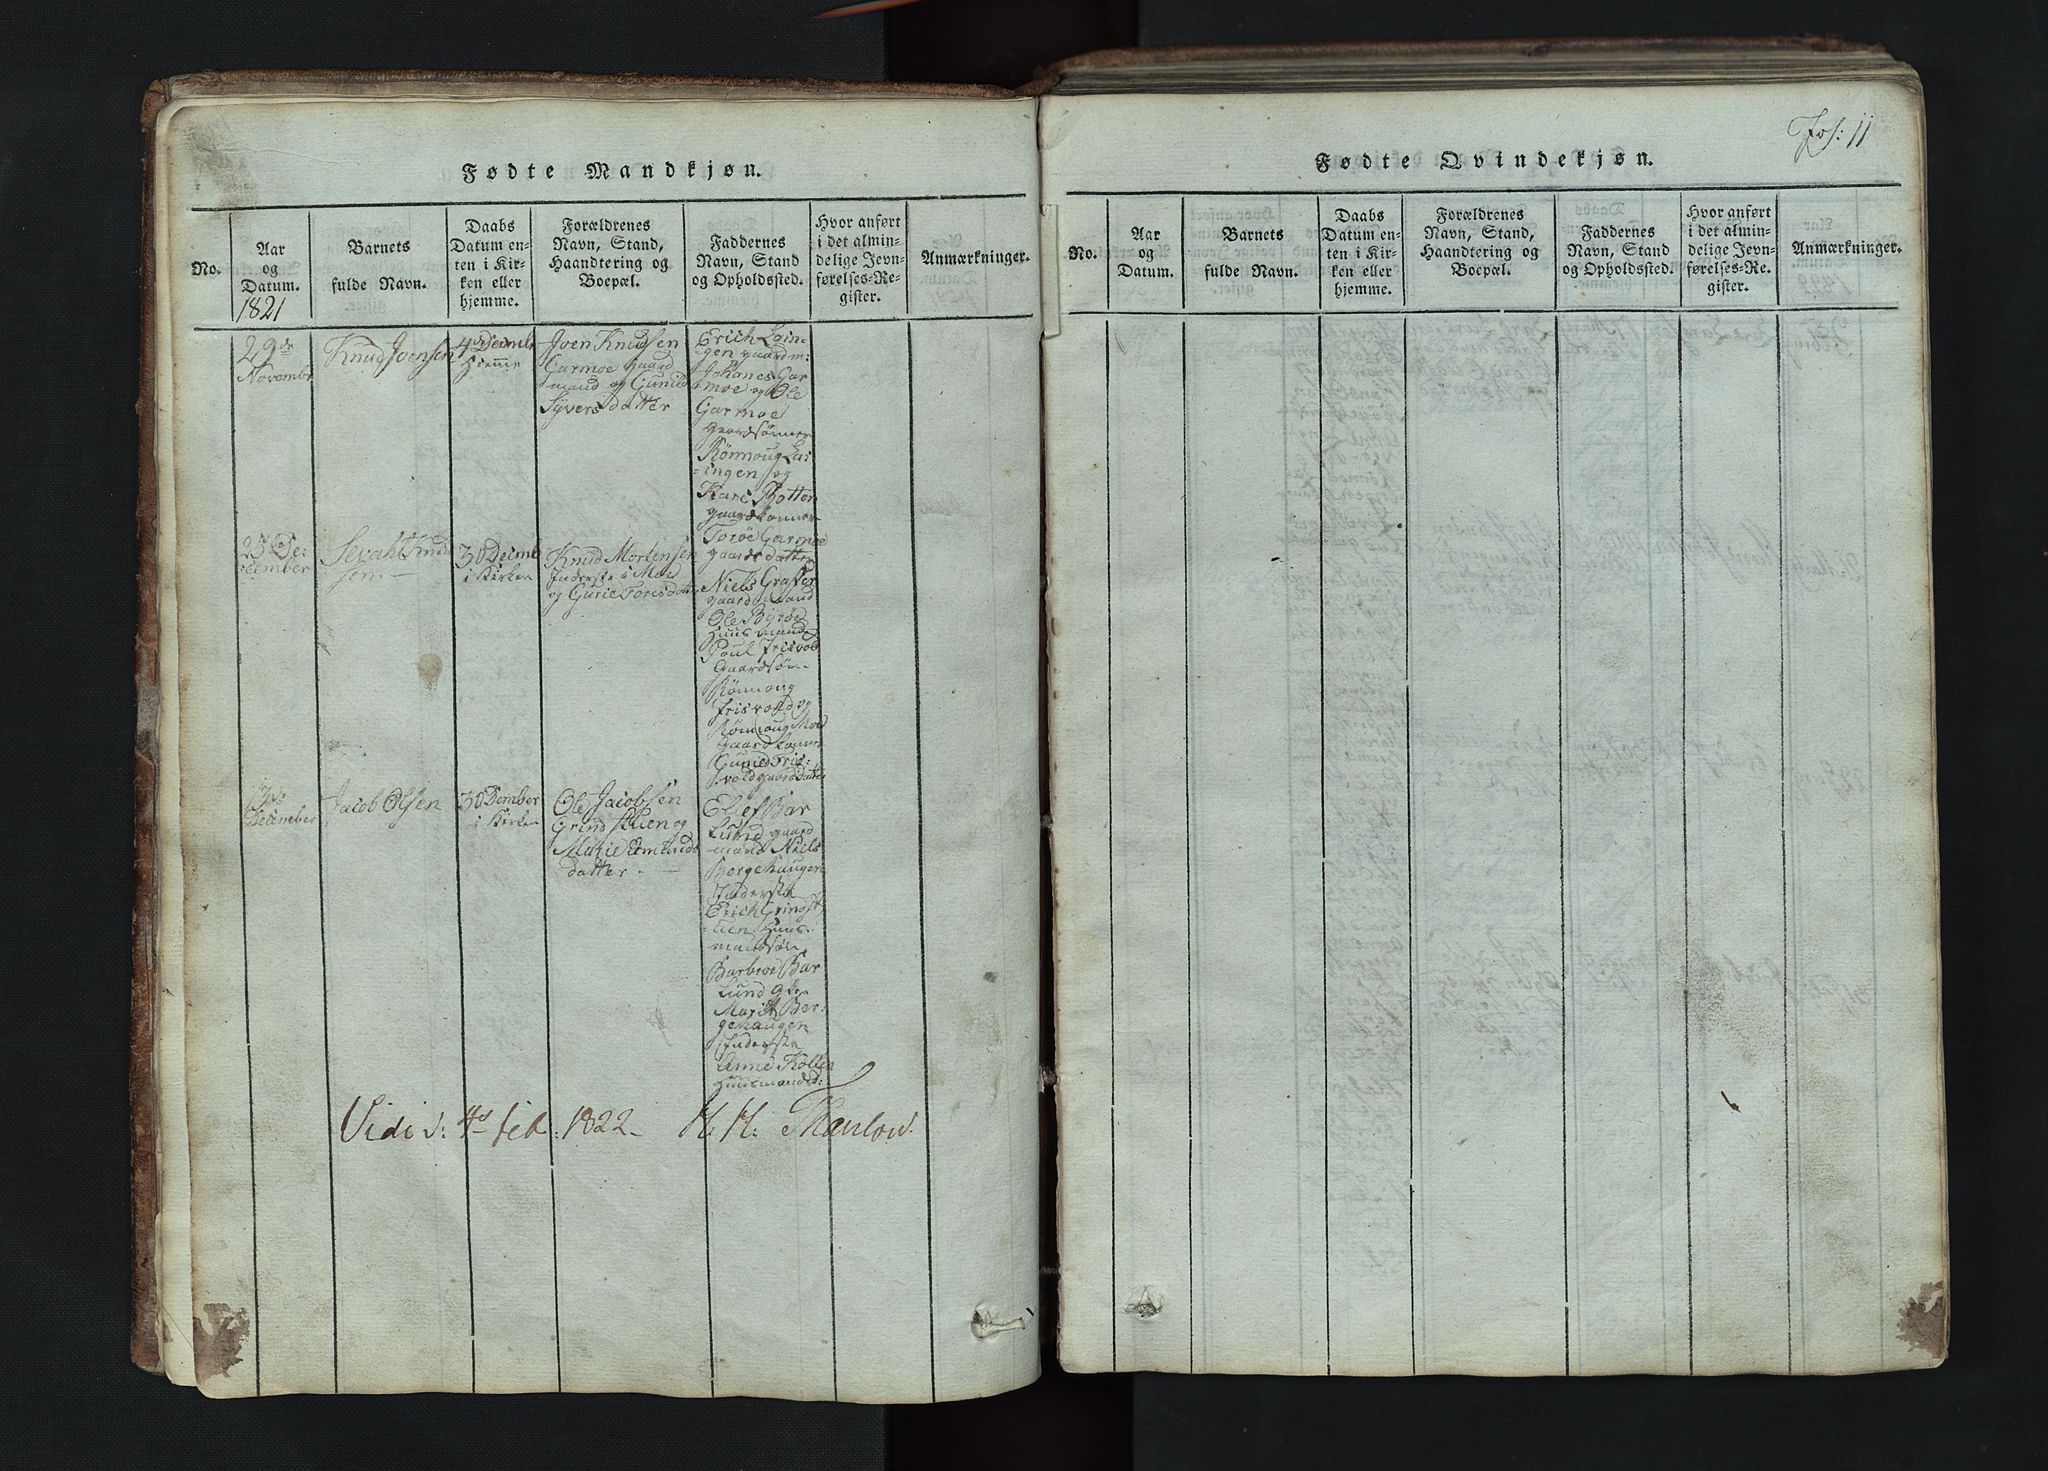 Fødte Mandkjøn.
No.
Aar
og
Datum.
1821
Barnets
fulde Navn.
Daabs
Datum en-
ten i Kir-
ken eller
hjemme.
Forældrenes
Navn, Stand,
Haandtering og
Boepæl.
Faddernes
Navn, Stand
og Opholdssted.
Hvor anført
i det almin-
delige Jevn-
førelses-Re-
gister.
Anmærkninger.
29de
Novembr
Knud Joensen
4de Decmbr
Hiemme
Joen Knudsen
Garmoe gaard
mand og Gunild
Syversdatter
Erich Lein-
gen gaardm:
Johanes Gar
moe og Ole
Garmoe
Gaardsønner
Rønnoug Lei
-ingen og
Kari Botten
gaardkonner
Toroe Garmoe
gaardsdatter
25de De-
cember
Knud
sen
30 Decmb
i Kirken
Knud Mortensen
Inderste i Moe
og Gurie Toresdatt
Niels Graffer
gaardmand
Ole Byrøe
Huusmand
Poul Frisvold
Gaardsøn
Rønnoug
Frisvold og
Rønnoug Moe
Gaardkonner
Gunild Fris-
vold gaardsdatter
December
Jacob Olsen
30 Dcember
i Kirken
Ole Jacobsen
Grindstuen og
Marie Emunds
datter
Elef Bar
Lund gaard
mand Niels
Bergehaugen
Inderste
Erich Grindst
uen Huus-
mandsøn
Barbroe Bar
Lund
Marit Ber-
gehaugen
Inderste
Anne Kollen
Huusmandsd:
Vidi d: 4de Feb: 1822 H. H: Thaulow.
Fol: 11
Fødte Qvindekjøn.
No.
Aar
og
Datum.
Barnets
fulde Navn.
Daabs
Datum en-
ten i Kir-
ken eller
hjemme.
Forældrenes
Navn, Stand,
Haandtering og
Boepæl.
Faddernes
Navn, Stand
og Opholdsted.
Hvor anført
i det almin-
delige Jevn-
førelses-Re-
gister.
Anmærkninger.